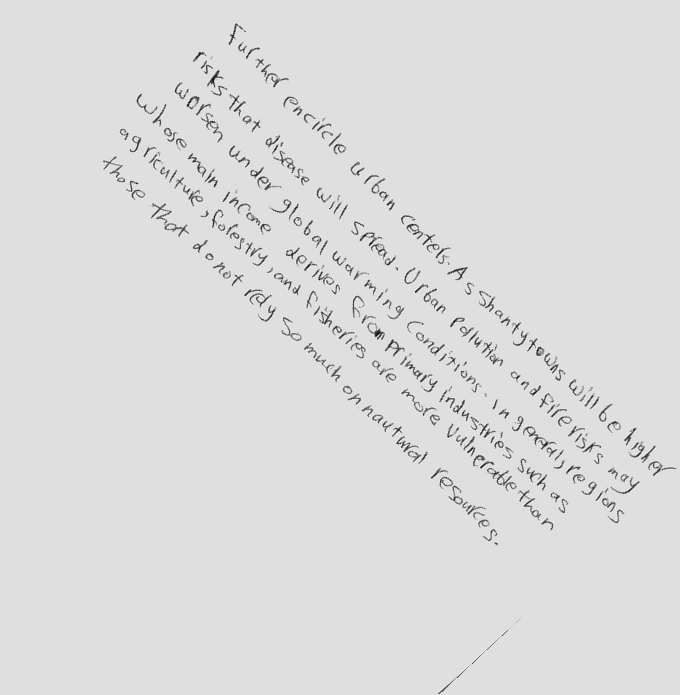 Further encircle urban centers. As shantytowns will be higher
risks that disease will spread. Urban pollution and fire risks may
worsen under global warming conditions. In general, regions
whose main income derives from primary industries such as
agriculture, forestry, and fisheries are more vulnerable than
those that do not rely so much on nautural resources.